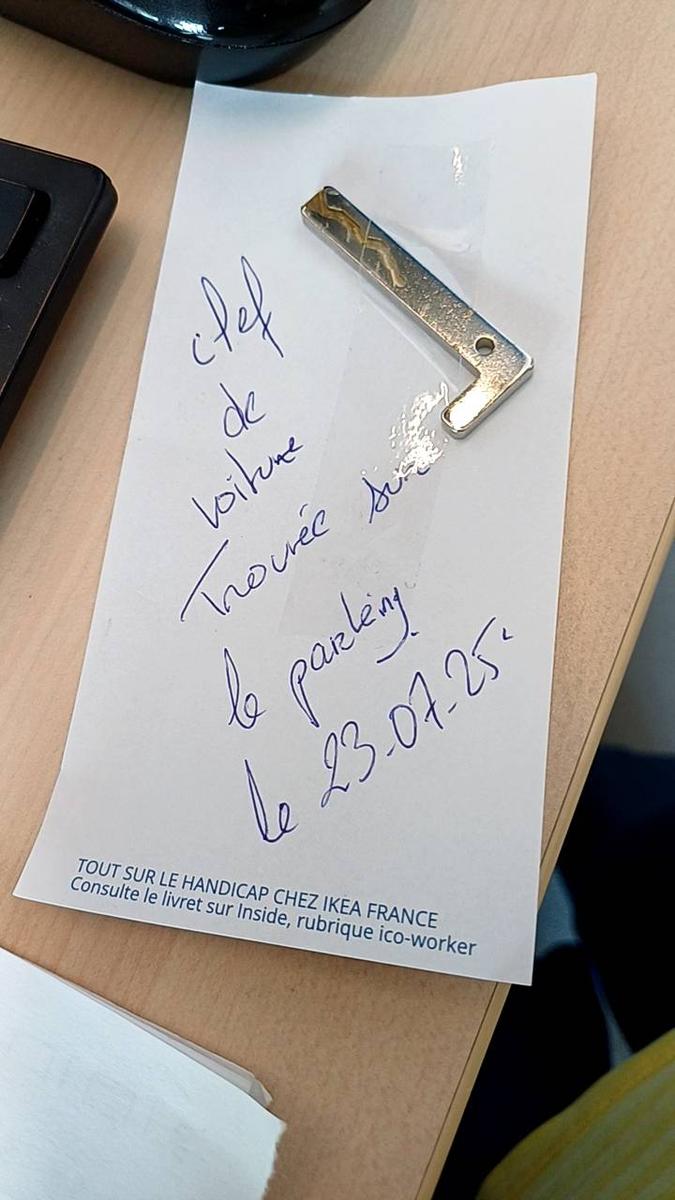 clef
de
voiture
Trouvée sur
le parking.
le 23-07-25.
TOUT SUR LE HANDICAP CHEZ IKEA FRANCE
Consulte le livret sur Inside, rubrique ico-worker